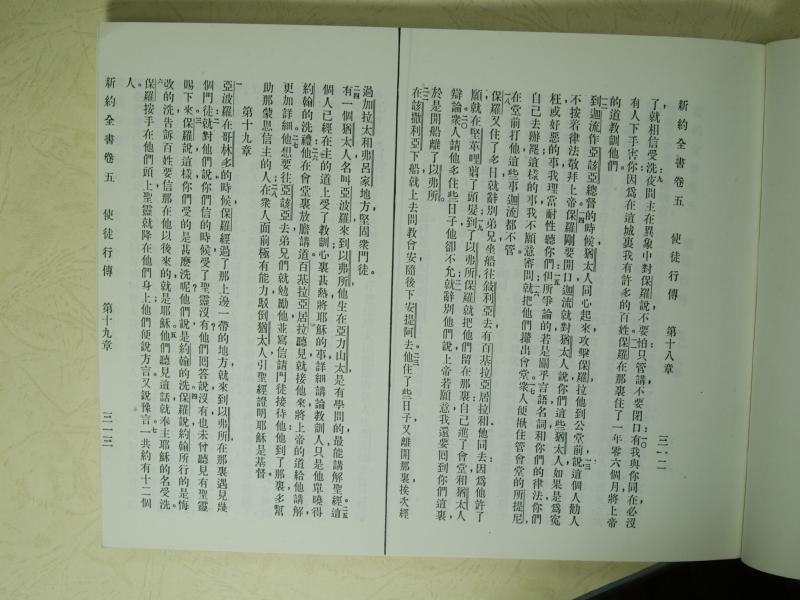 新約全書卷五　使徒行傳　第十八章　三一二
了就相信受洗夜間主在異象中對保羅說不要怕只管講不要閉口有我與你同在必沒
有人下手害你因爲在這城裏我有許多的百姓保羅在那裏住了一年零六個月將上帝
的道教訓他們
到迦流作亞該亞總督的時候猶太人同心起來攻擊保羅拉他到公堂前說這個人勸人
不按着律法敬拜上帝保羅剛要開口迦流就對猶太人說你們這些猶太人如果是爲冤
枉或奸惡的事我理當耐性聽你們但所爭論的若是關乎言語名詞和你們的律法你們
自己去辦罷這樣的事我不願意審問就把他們攆出會堂衆人便揪住管會堂的所提尼
在堂前打他這些事迦流都不管
保羅又住了多日就辭別弟兄坐船往敘利亞去有百基拉亞居拉和他同去因爲他許了
願就在堅革哩剪了頭髮到了以弗所保羅就把他們留在那裏自己進了會堂和猶太人
辯論衆人請他多住些日子他卻不允就辭別他們說上帝若願意我還要回到你們這裏
於是開船離了以弗所
在該撒利亞下船就上去問教會安隨後下安提阿去他住了些日子又離開那裏挨次經
過加拉太和弗呂家地方堅固衆門徒
有一個猶太人名叫亞波羅來到以弗所他生在亞力山太是有學問的最能講解聖經這
個人已經在主的道上受了教訓心裏甚熱將耶穌的事詳細講論教訓人只是他單曉得
約翰的洗禮他在會堂裏放膽講道百基拉亞居拉聽見就接他來將上帝的道給他講解
更加詳細他想要往亞該亞去弟兄們就勉勵他並寫信請門徒接待他他到了那裏多幫
助那蒙恩信主的人在衆人面前極有能力駁倒猶太人引聖經證明耶穌是基督
第十九章
亞波羅在哥林多的時候保羅經過了那上邊一帶的地方就來到以弗所在那裏遇見幾
個門徒就對他們說你們信的時候受了聖靈沒有他們回答說沒有也未曾聽見有聖靈
賜下來保羅說這樣你們受的是甚麼洗呢他們說是約翰的洗保羅說約翰所行的是悔
改的洗告訴百姓要信那在他以後來的就是耶穌他們聽見這話就奉主耶穌的名受洗
保羅按手在他們頭上聖靈就降在他們身上他們便說方言又說豫言一共約有十二個
人
新約全書卷五　使徒行傳　第十九章　三一三